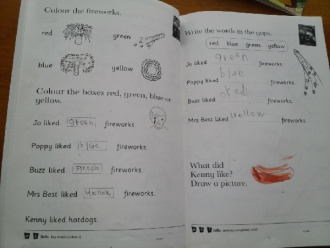 Colour the fireworks.
red green
blue yellow
Colour the boxes red, green, blue or
yellow.
Jo liked green fireworks.
Poppy liked blue fireworks.
Buzz liked fireworks.
Mrs Best liked yellow fireworks.
Kenny liked hotdogs.
Write the words in the gaps.
red blue green yellow
Jo liked green fireworks.
Poppy liked blue fireworks.
Buzz liked red fireworks.
Mrs Best liked yellow fireworks.
What did
Kenny like?
Draw a picture.